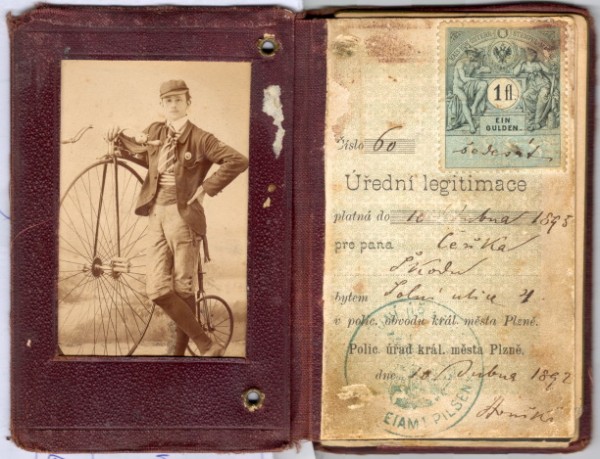 1 fl.
EIN
GULDEN.
Číslo 60
Úřední legitimace
platná do 10 Dubna 1893
pro pana Čeňka
Škodu
bytem Solní ulice 4.
v polic. obvodu král. města Plzně.
Polic. úřad král. města Plzně.
dne 10 Dubna 1892
PILSEN